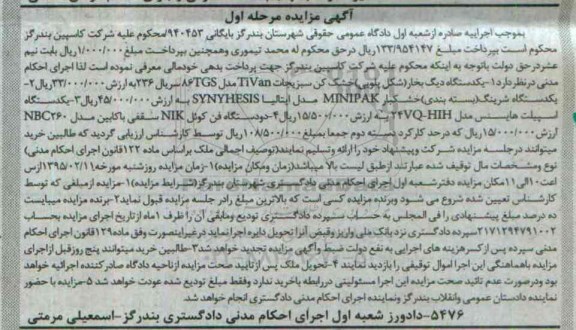 آگهی مزایده مرحله اول
بموجب اجراییه صادره ازشعبه اول دادگاه عمومی حقوقی شهرستان بندرگز بایگانی ۹۴۰۴۵۳/محکوم علیه شرکت کاسپین بندرگز
محکوم است بپرداخت مبلغ ۱۳۳/۹۵۴۱۴۷ریال درحق محکوم له محمد تیموری وهمچنین بپرداخت مبلغ۱/۰۰۰/۰۰۰ریال بابت نیم
عشردرحق دولت باتوجه به اینکه محکوم علیه شرکت کاسپین بندرگز جهت پرداخت بدهی خودمالی معرفی نموده است لذا اجرای احکام
مدنی درنظردارد۱-یکدستگاه دیگ بخار(شکل پلویی)خشک کن سبزیجات TiVanمدل ۸۶TGSسریال ۲۳۶به ارزش ۳۳/۰۰۰/۰۰۰ریال۲-
یکدستگاه شرینگ(بسته بندی)خشکبار MINIPAK مدل ایتالیا SYNYHESIS به ارزش ۴۵/۰۰۰/۰۰۰ریال۳-یکدستگاه
اسپیلت هایسنس مدل ۲۴VQ-HIH به ارزش ۱۵/۵۰۰/۰۰۰ریال۴-دودستگاه فن کوئل NIK سقفی باکابین مدل NBC۲۶۰
ارزش ۱۵/۰۰۰/۰۰۰ریال که درحد کارکرد ودسته دوم جمعا بمبلغ ۱۰۸/۵۰۰/۰۰۰ ریال توسط کارشناس ارزیابی گردیده که طالبین خرید
میتوانند درجلسه مزایده شرکت وپیشنهاد خود را ارائه وتسلیم نمایند(توصیف اجمالی ملک براساس ماده ۱۲۲قانون اجرای احکام مدنی)
نوع ومشخصات مال توقیف شده عبارتند ازطبق لیست بالا میباشد(زمان ومکان مزایده)۱-زمان مزایده روزشنبه مورخه۱۳۹۵/۰۲/۱۱ازس
اعت۱۰الی۱۱مکان مزایده دفترشعبه اول اجرای احکام مدنی دادگستری شهرستان بندرگز(شرایط مزایده)۱-مزایده ازمبلغی که توسط
کارشناس تعیین شده شروع می شود وبرنده مزایده کسی است که بالاترین مبلغ رادر جلسه مزایده قبول نماید۲-برنده مزایده میبایست
ده درصد مبلغ پیشنهادی را فی المجلس به حساب سپرده دادگستری تودیع ومابقی آن را ظرف ۱ماه ازتاریخ اجرای مزایده بحساب
۲۱۷۱۲۹۴۷۹۱۰۰۲سپرده دادگستری نزد بانک ملی واریز وفیش آنرا تحویل دایره اجرا نماید درغیراینصورت وفق ماده۱۲۹قانون اجرای احکام
مدنی سپرده پس از کسرهزینه های اجرایی به نفع دولت ضبط وآگهی مزایده تجدید خواهد شد۳-طالبین خرید میتوانند پنج روزقبل ازاجرای
مزایده باهماهنگی این اجرا اموال توقیفی را بازدید نمایند ۴-تحویل ملک پس ازتایید صحت مزایده ازناحیه دادگاه صادرکننده اجرائیه خواهد
بود ودرصورت عدم تائید صحت مزایده این اجرا مسئولیتی دررابطه باخرید ندارد وفقط مبلغ تودیع شده عودت خواهد شد ۵-مزایده با حضور
نماینده دادستان عمومی وانقلاب بندرگز ونماینده اجرای احکام مدنی دادگستری انجام خواهد شد.
۵۴۷۶-دادورز شعبه اول اجرای احکام مدنی دادگستری بندرگز-اسمعیلی مرمتی